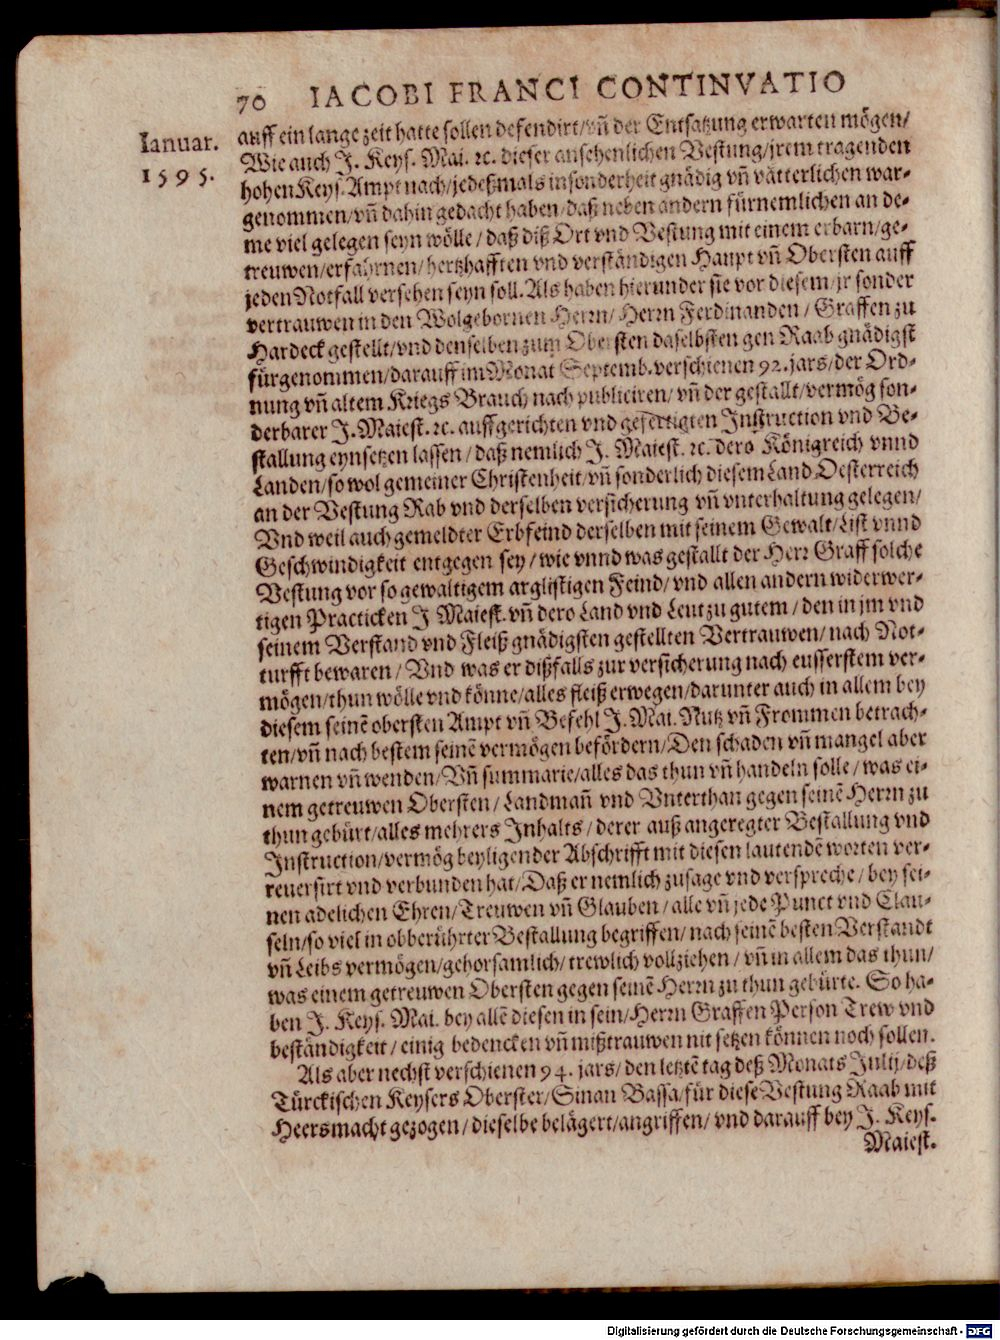 70 IACOBI FRANCI CONTINVATIO
Ianuar.
1595.
auff ein lange zeit hatte sollen defendirt/vñ der Entsatzung erwarten mögen/
Wie auch J. Keys. Mai. ꝛc. dieser ansehenlichen Vestung/jrem tragenden
hohen Keys. Ampt nach/jedeßmals insonderheit gnädig vñ vätterlichen war-
genommen/vñ dahin gedacht haben/daß neben andern fürnemlichen an de-
me viel gelegen seyn wölle/daß diß Ort vnd Vestung mit einem erbarn/ge-
treuwen/erfahrnen/hertzhafften vnd verständigen Haupt vñ Obersten auff
jeden Notfall versehen seyn soll. Als haben hierunder sie vor diesem/jr sonder
vertrauwen in den Wolgebornen Herrn/Herrn Ferdinanden/Graffen zu
Hardeck gestellt/vnd denselben zum Obersten daselbsten gen Raab gnädigst
fürgenommen/darauff im Monat Septemb. verschienen 92. jars/der Ord-
nung vñ altem Kriegs Brauch nach publiciren/vñ der gestallt/vermög son-
derbarer J. Maiest. ꝛc. auffgerichten vnd gefertigten Instruction vnd Be-
stallung eynsetzen lassen/daß nemlich J. Maiest. ꝛc. dero Königreich vnnd
Landen/so wol gemeiner Christenheit/vñ sonderlich diesem Land Oesterreich
an der Vestung Rab vnd derselben versicherung vñ vnterhaltung gelegen/
Vnd weil auch gemeldter Erbfeind derselben mit seinem Gewalt/List vnnd
Geschwindigkeit entgegen sey/wie vnnd was gestallt der Herr Graff solche
Vestung vor so gewaltigem arglistigen Feind/vnd allen andern widerwer-
tigen Practicken J Maiest. vñ dero Land vnd Leut zu gutem/den in jm vnd
seinem Verstand vnd Fleiß gnädigsten gestellten Vertrauwen/nach Not-
turfft bewaren/Vnd was er dißfalls zur versicherung nach eusserstem ver-
mögen/thun wölle vnd könne/alles fleiß erwegen/darunter auch in allem bey
diesem seinẽ obersten Ampt vñ Befehl J. Mai. Nutz vñ Frommen betrach-
ten/vñ nach bestem seinẽ vermögen befördern/Den schaden vñ mangel aber
warnen vñ wenden/Vñ summarie/alles das thun vñ handeln solle/was ei-
nem getreuwen Obersten/Landmañ vnd Vnterthan gegen seinẽ Herrn zu
thun gebürt/alles mehrers Inhalts/derer auß angeregter Bestallung vnd
Instruction/vermög beyligender Abschrifft mit diesen lautendẽ worten ver-
reuersirt vnd verbunden hat/Daß er nemlich zusage vnd verspreche/bey sei-
nen adelichen Ehren/Treuwen vñ Glauben/alle vñ jede Punct vnd Clau-
seln/so viel in obberührter Bestallung begriffen/nach seinẽ besten Verstandt
vñ Leibs vermögen/gehorsamlich/trewlich vollziehen/vñ in allem das thun/
was einem getreuwen Obersten gegen seinẽ Herrn zu thun gebürte. So ha-
ben J. Keys. Mai. bey allẽ diesen in sein/Herrn Graffen Person Trew vnd
beständigkeit/einig bedencken vñ mißtrauwen nit setzen können noch sollen.
Als aber nechst verschienen 94. jars/den letztẽ tag deß Monats Julij/deß
Türckischen Keysers Oberster/Sinan Bassa/für diese Vestung Raab mit
Heersmacht gezogen/dieselbe belägert/angriffen/vnd darauff bey J. Keys.
Maiest.
Digitalisierung gefördert durch die Deutsche Forschungsgemeinschaft - DFG